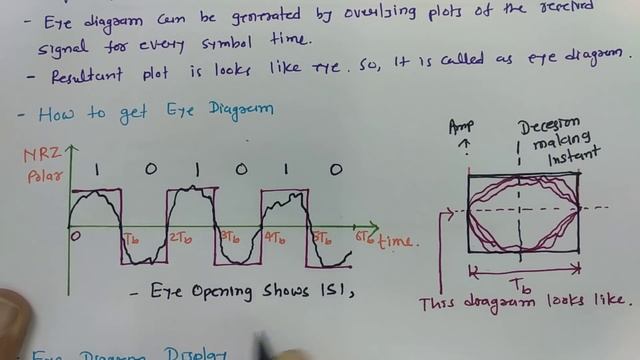 - Eye diagram can be generated by overlying plots of the received
signal for every symbol time.
- Resultant plot is looks like eye. So, it is called as eye diagram.
- How to get Eye Diagram
NRZ
Polar
1 0 1 0 1 0
0 Tb 2Tb 3Tb 4Tb 5Tb 6Tb time.
- Eye Opening Shows ISI,
Amp
Decesion
making
Instant
Tb
This diagram looks like.
- Eye Diagram Display